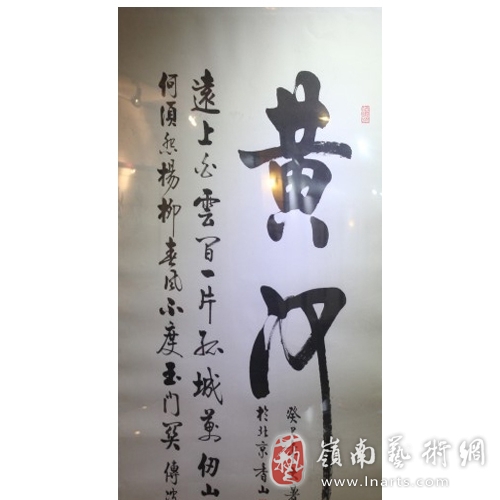 黄河
遠上白雲间一片孤城萬仞山
何須怨楊柳春风不度玉门関
傳
癸
於北京香山
藝
嶺南藝術網
www.lnarts.com